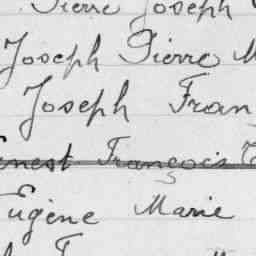 Pierre Joseph
Joseph Pierre M
Joseph Fran
rnest François
Eugène Marie